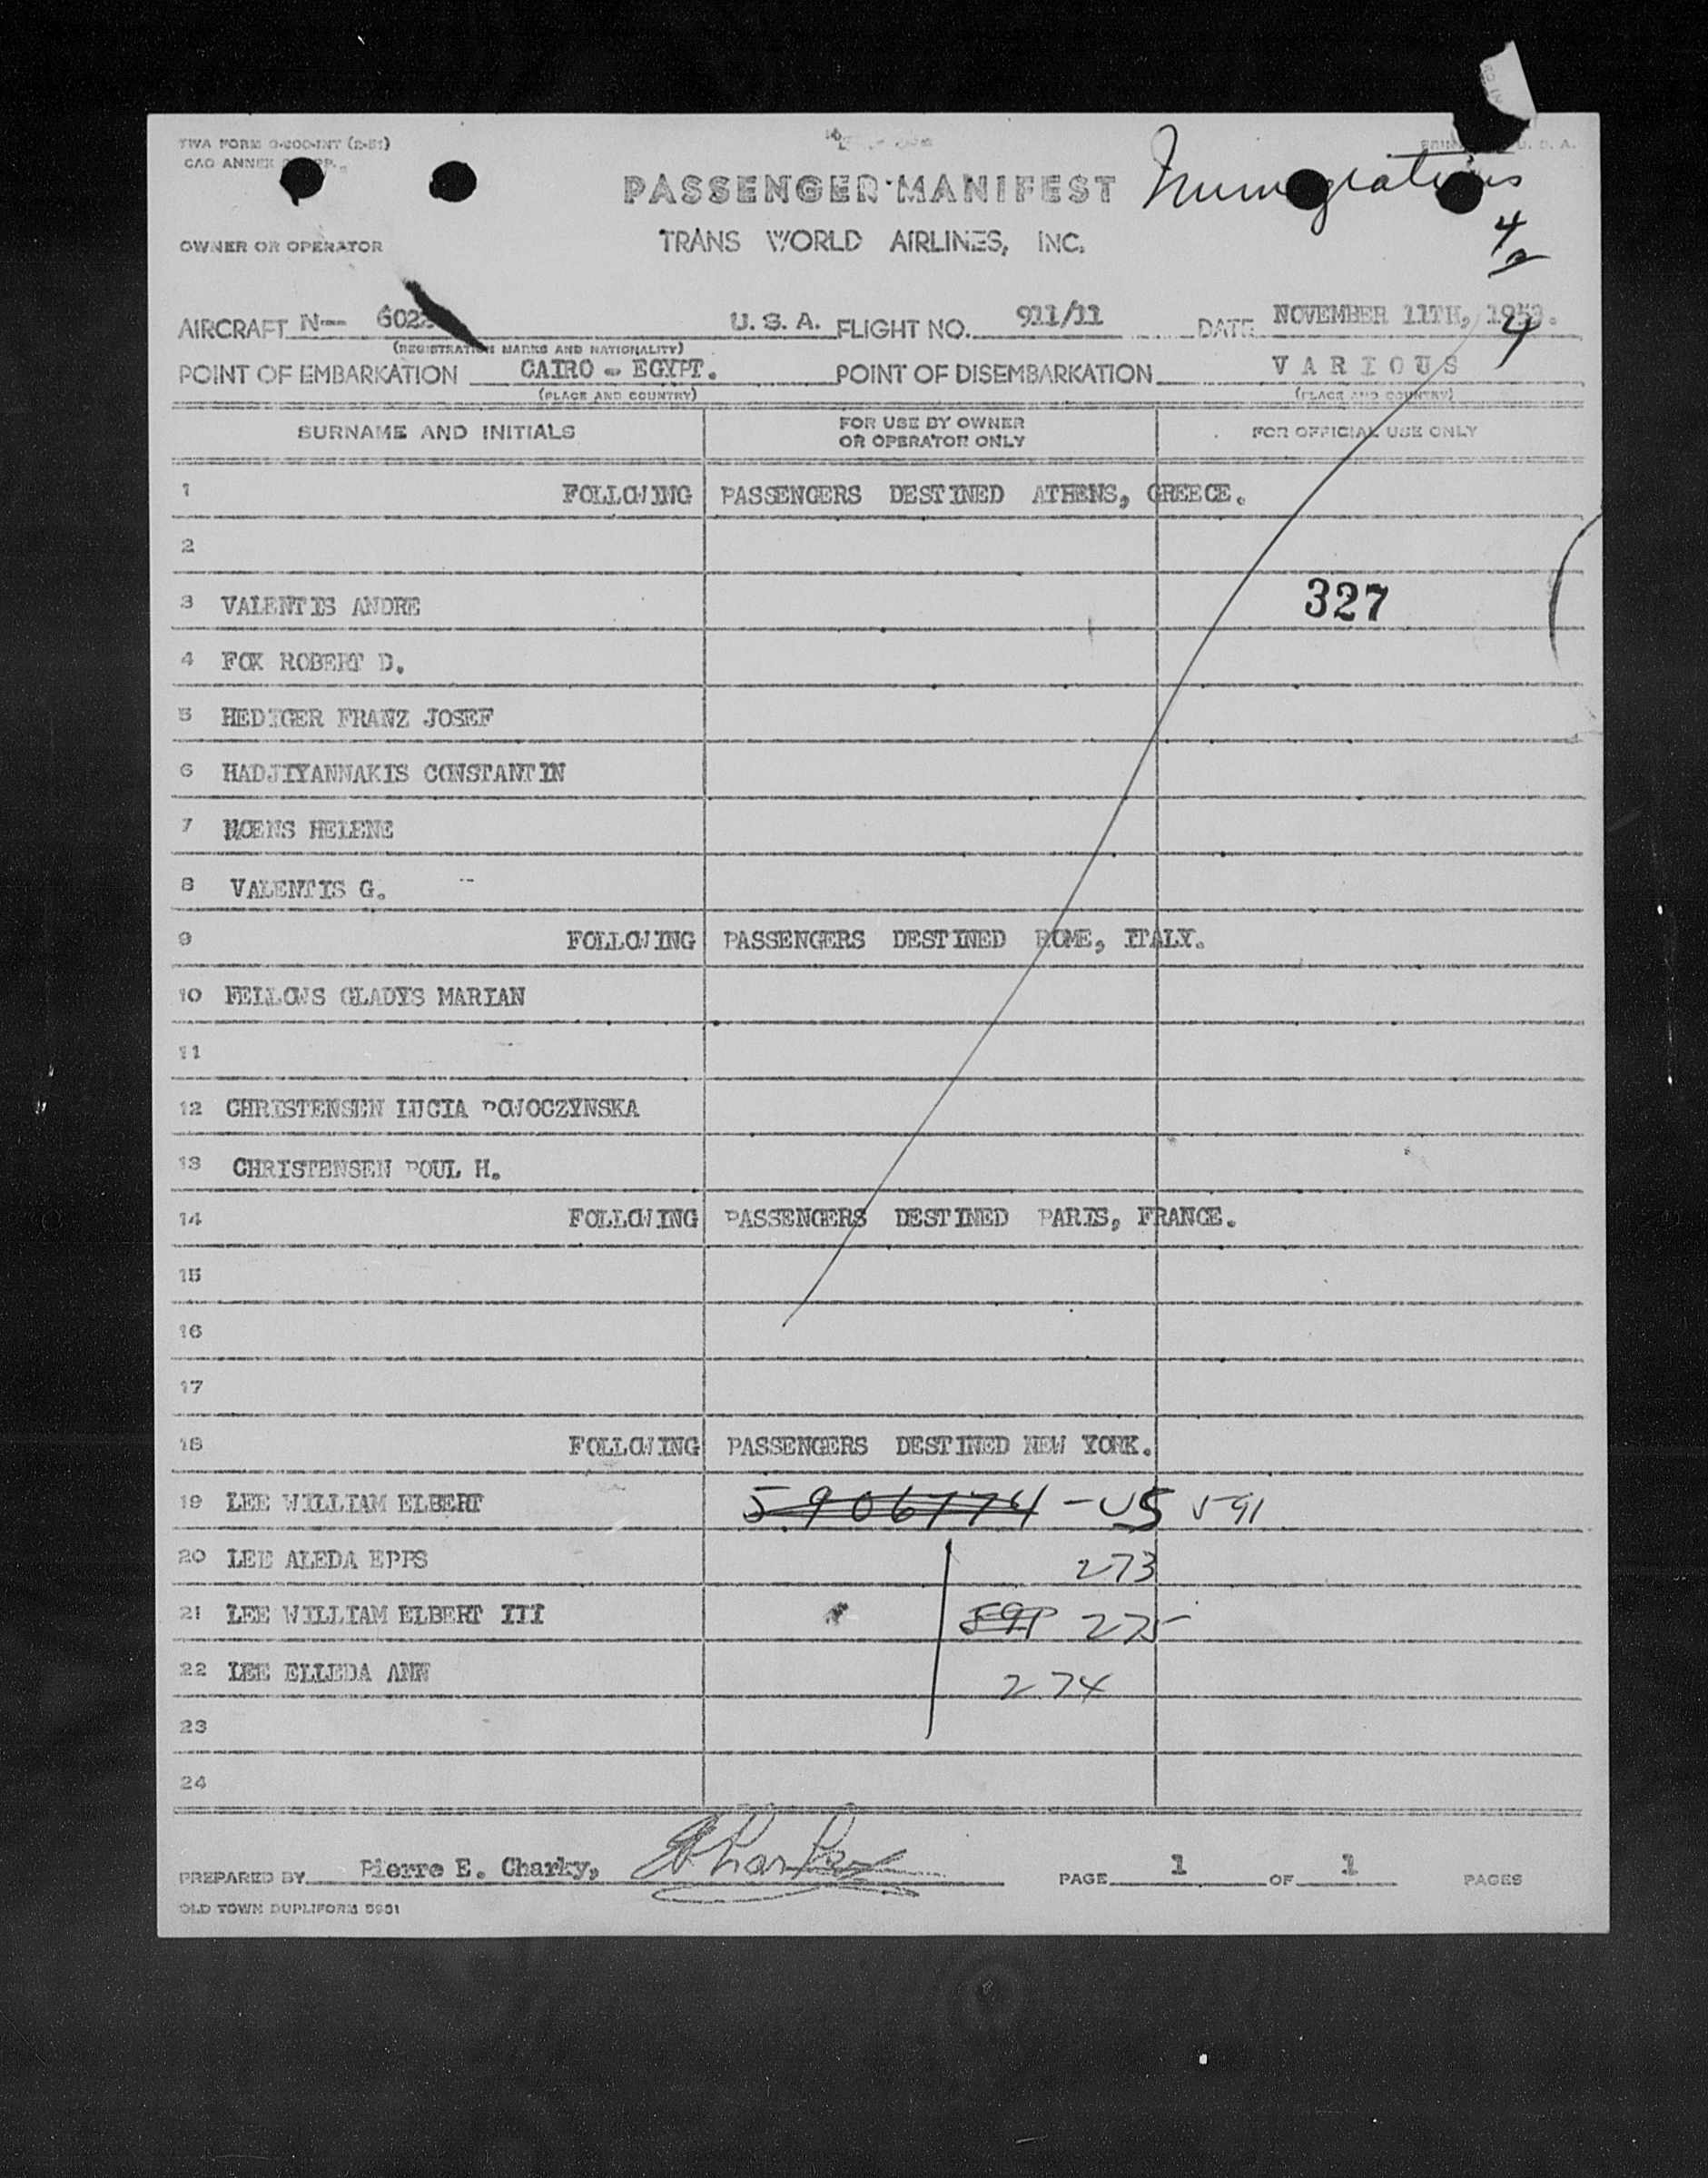 TWA FORM
CAO ANNEX
PASSENGER MANIFEST Immigrations
OWNER OR OPERATOR TRANS WORLD AIRLINES, INC. 4
2
AIRCRAFT N-- U.S.A. FLIGHT NO. 911/11 DATE NOVEMBER 11TH,
(REGISTRATION MARKS AND NATIONALITY) 4
POINT OF EMBARKATION CAIRO - EGYPT. POINT OF DISEMBARKATION VARIOUS
(PLACE AND COUNTRY) (PLACE AND COUNTRY)
SURNAME AND INITIALS FOR USE BY OWNER OR OPERATOR ONLY FOR OFFICIAL USE ONLY
1 FOLLOWING PASSENGERS DESTINED ATHENS, GREECE.
2
3 VALENTIS ANDRE 327
4 FOX ROBERT D.
5 HEDIGER FRANZ JOSEF
6 HADJIYANNAKIS CONSTANTIN
7 HELENE
8 VALENTIS G.
9 FOLLOWING PASSENGERS DESTINED ROME, ITALY.
10 FELLOWS GLADYS MARIAN
11
12 CHRISTENSEN LUCIA
13 CHRISTENSEN POUL H.
14 FOLLOWING PASSENGERS DESTINED PARIS, FRANCE.
15
16
17
18 FOLLOWING PASSENGERS DESTINED NEW YORK.
19 LEE WILLIAM ELBERT 5906774 - US 591
20 LEE ALEDA EPPS 273
21 LEE WILLIAM ELBERT III 591 275
22 LEE ELLEDA ANN 274
23
24
PREPARED BY Pierre E. Charky, PAGE 1 OF 1 PAGES
OLD TOWN DUPLIFORM 5951